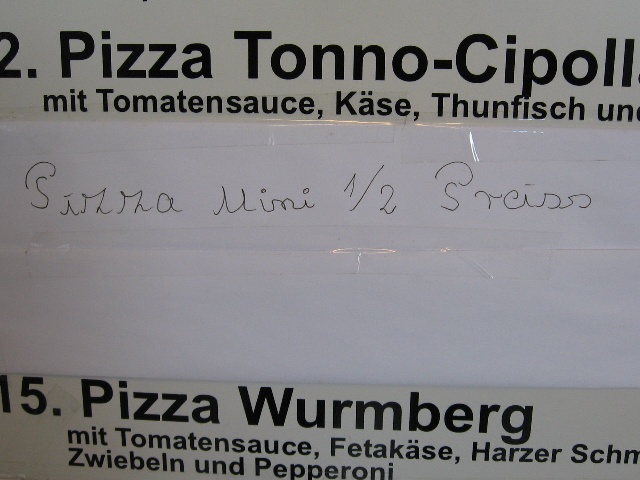 2. Pizza Tonno-Cipolla
mit Tomatensauce, Käse, Thunfisch und
Pizza Mini 1/2 Preiss
15. Pizza Wurmberg
mit Tomatensauce, Fetakäse, Harzer Schm
Zwiebeln und Pepperoni